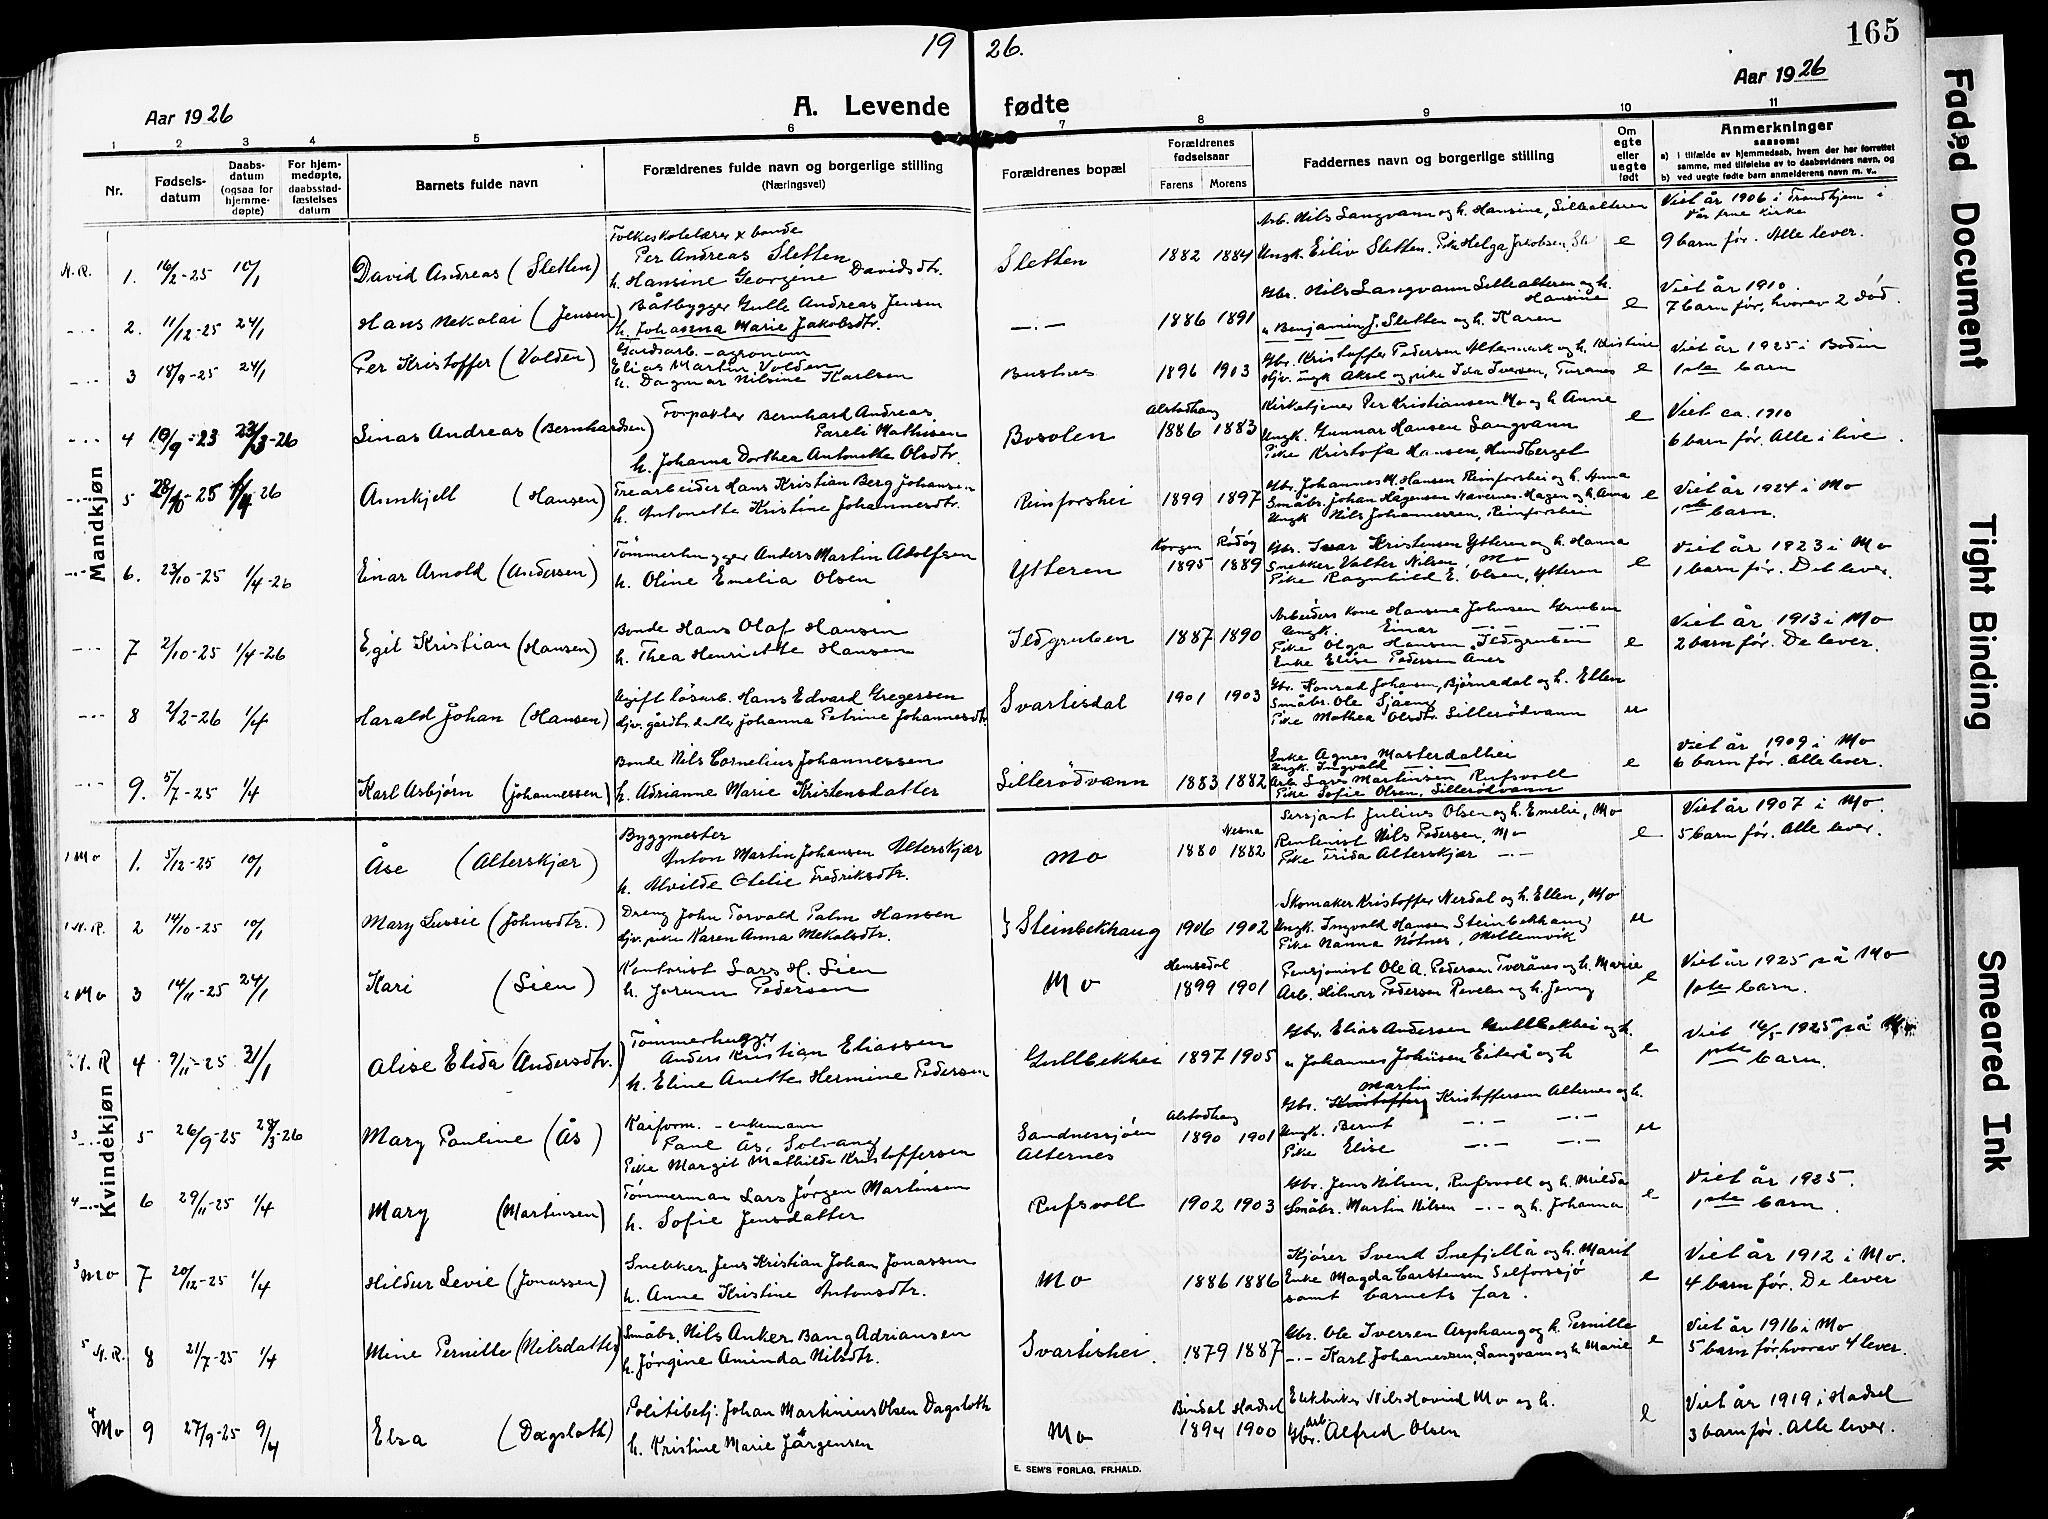 19 26.
165
Aar 1926
A. Levende fødte
Aar 1926
1 2 3 4 5 6 7 8 9 10 11
Nr.
Fødsels-
datum
Daabs-
datum
(ogsaa for
hjemme-
døpte)
For hjem-
medøpte,
daabsstad-
fæstelses
datum
Barnets fulde navn
Forældrenes fulde navn og borgerlige stilling
(Næringsvei)
Forældrenes bopæl
Forældrenes
fødselsaar
Farens Morens
Faddernes navn og borgerlige stilling
Om
egte
eller
uegte
født
Anmerkninger
saasom:
a) i tilfælde av hjemmedaab, hvem der har forrettet
samme, med tilføielse av to daabsvidners navn, og
b) ved uegte fødte barn anmelderens navn m. v..
Mandkjøn
N.R. 1. 16/2-25 10/1
David Andreas (Sletten)
Folkeskolelærer x bonde
Per Andreas Sletten
h. Hansine Georgine Davidsdtr.
Sletten
1882 1884
Arb. Nils Langvann og h. Hansine, Sillealteren
Ungk. Eiliv Sletten. Pike Helga Jacobsen, Sl.
e
Viet år 1906 i Trondhjem i
Vår frue kirke
9 barn før. Alle lever.
-.- 2. 11/12-25 24/1
Hans Nekolai (Jensen)
Båtbygger Gulle Andreas Jensen
h. Johanna Marie Jakobsdtr.
-.-
1886 1891
Gbr. Nils Langvann Sillealteren og h.
Hansine
" Benjamin J. Sletten og h. Karen
e
Viet år 1910.
7 barn før, hvorav 2 død.
-.- 3 18/9-25 24/1
Per Kristoffer (Volden)
Gårdsarb. - agronom
Elias Martin Volden
h. Dagmar Nilsine Karlsen
Bustnes
1896 1903
Gbr. Kristoffer Pedersen Altermark og h. Kristine
Hjv. ungk Aksel og pike Ida Iversen, Turanes
e
Viet år 1925 i Bodin
1ste barn
-.- 4 18/9-23 23/3-26
Linas Andreas (Bernhardsen)
Forpakter Bernhard Andreas
Fareli Mathisen
h. Johanna Dorthea Antonette Olsdtr.
Bosolen
Alstadhaug
1886 1883
Kirketjener Per Kristiansen Mo og h. Anne
Ungk. Gunnar Hansen Langvann
Pike Kristofa Hansen, Hundberget
e
Viet ca. 1910
6 barn før. Alle i live.
-.- 5 28/10-25 1/4-26
Arnkjell (Hansen)
Trearbeider Hans Kristian Berg Johansen
h. Antonette Kristine Johannesdtr.
Reinforshei
1899 1897
Gbr. Johannes M. Hansen Reinforshei og h. Anna
Småbr. Johan Hågensen Navernes-Hagen og h. Anna
Ungk Nils Johannessen, Reinforshei
e
Viet år 1924 i Mo
1ste barn.
-.- 6. 23/10-25 1/4-26
Einar Arnold (Andersen)
Tømmerhugger Anders Martin Adolfsen
h. Oline Emelia Olsen
Ytteren
Korgen Rødøy
1895 1889
Gbr. Ivar Kristensen Ytteren og h. Hanna
Snekker Valter Nilsen, Mo
Pike Ragnhild E. Olsen, Ytteren
e
Viet år 1923 i Mo
1 barn før. Det lever.
-.- 7 2/10-25 1/4-26
Egil Kristian (Hansen)
Bonde Hans Olaf Hansen
h. Thea Henriette Hansen
Ildgruben
1887 1890
Arbeiders kone Hansina Johnsen Gruben
Ungk. Einar -.- -.-
Pike Olga Hansen, Ildgruben
Enke Elise Pedersen Ånes
e
Viet år 1913 i Mo
2 barn før. De lever.
-.- 8 2/2-26 1/4
Harald Johan (Hansen)
Ugift løsarb. Hans Edvard Gregersen
Hjv. gårdbr. datter Johanna Petrine Johannesdtr.
Svartisdal
1901 1903
Gbr. Konrad Johansen, Bjørnådal og h. Ellen
Småbr. Ole Sjåeng
Pike Mathea Olsdtr. Lillerødvann
u
-.- 9. 5/7-25 1/4
Karl Asbjørn (Johannessen)
Bonde Nils Cornelius Johannessen
h. Adrianne Marie Kristensdatter
Lillerødvann
1883 1882
Enke Agnes Masterdalhei
Ungk. Ingvald
Arb. Lars Martinsen Rufsvoll
Pike Sofie Olsen, Lillerødvann
e
Viet år 1909 i Mo
6 barn før. Alle lever.
Kvindekjøn
1 Mo 1. 5/12-25 10/1
Åse (Alterskjær)
Byggmester
Anton Martin Johansen Alterskjær
h. Alvilde Otelie Fredriksdtr.
Mo
Nesna
1880 1882
Sersjant Julius Olsen og h. Emelie, Mo
Rentenist Nils Pedersen, Mo
Pike Frida Alterskjær -.-
e
Viet år 1907 i Mo.
5 barn før. Alle lever.
1 N.R. 2 14/10-25 10/1
Mary Lussie (Johnsdtr.)
Dreng John Torvald Palm Hansen
Hjv. pike Karen Anna Nekolsdtr.
Steinbekkhaug
1906 1902
Skomaker Kristoffer Nerdal og h. Ellen, Mo
Ungk. Ingvald Hansen Steinbekkhaug
Pike Nanna Nøtnes, Mellemvik
u
2 Mo 3 14/11-25 24/1
Kari (Lien)
Kontorist Lars H. Lien
h. Jorunn Pedersen
Mo
Hemsedal
1899 1901
Pensjonist Ole A. Pedersen Tverånes og h. Marie
Arb. Hilmar Pedersen Revelen og h. Jenny
e
Viet år 1925 på Mo
1ste barn.
N.R 4 9/11-25 31/1
Alise Elida (Andersdtr.)
Tømmerhugger
Anders Kristian Eliassen
h. Eline Anette Hermine Pedersen
Gullbekkhei
1897 1905
Gbr. Elias Andersen Gullbekkhei og h.
" Johannes Johnsen Eiterå og h
e
Viet 16/5 1925 på Mo.
1ste barn.
3 -.- 5 26/9-25 28/3-26
Mary Pauline (Ås)
Kaiform. - enkemann
Paul Ås, Solvang
Pike Margit Mathilde Kristoffersen
Sandnessjøen
Alternes
Alstadhaug
1890 1901
Gbr. Martin Kristoffersen Alternes og h.
Ungk. Bernt -.- -.-
Pike Elise -.- -.-
u
4 -.- 6 29/11-25 1/4
Mary (Martinsen)
Tømmerman Lars Jørgen Martinsen
h. Sofie Jensdatter
Rufsvoll
1902 1903
Gbr. Jens Nilsen, Rufsvoll og h. Milda
Småbr. Martin Nilsen -.- og h. Johanna
e
Viet år 1925.
1ste barn.
3 Mo 7 20/12-25 1/4
Hildur Levie (Jonassen)
Snekker Jens Kristian Johan Jonassen
h. Anne Kristine Antonsdtr.
Mo
1886 1886
Kjører Svend Snefjellå og h. Marit
Enke Magda Carstensen Selforssjø
samt barnets far.
e
Viet år 1912 i Mo.
4 barn før. De lever
5 N.R. 8 21/7-25 1/4
Mine Pernille (Nilsdatter)
Småbr. Nils Anker Bang Adriansen
h. Jørgine Aminda Nilsdtr.
Svartishei.
1879 1887
Gbr. Ole Iversen Asphaug og h. Pernille
-.- Karl Johannessen, Langvann og h. Marie
e
Viet år 1916 i Mo
5 barn før, hvorav 4 lever.
4 Mo 9 27/9-25 9/4
Elsa (Dagsloth)
Politibetj. Johan Martinius Olsen Dagsloth
h. Kristine Marie Jørgensen
Mo
Bindal Hadsel
1894 1900
Nils Hovind Mo og h.
Gbr. arb. Alfred Olsen
e
Viet år 1919 i Hadsel
3 barn før. Alle lever.
E. SEM'S FORLAG, FR.HALD.
Faded Document
Tight Binding
Smeared Ink